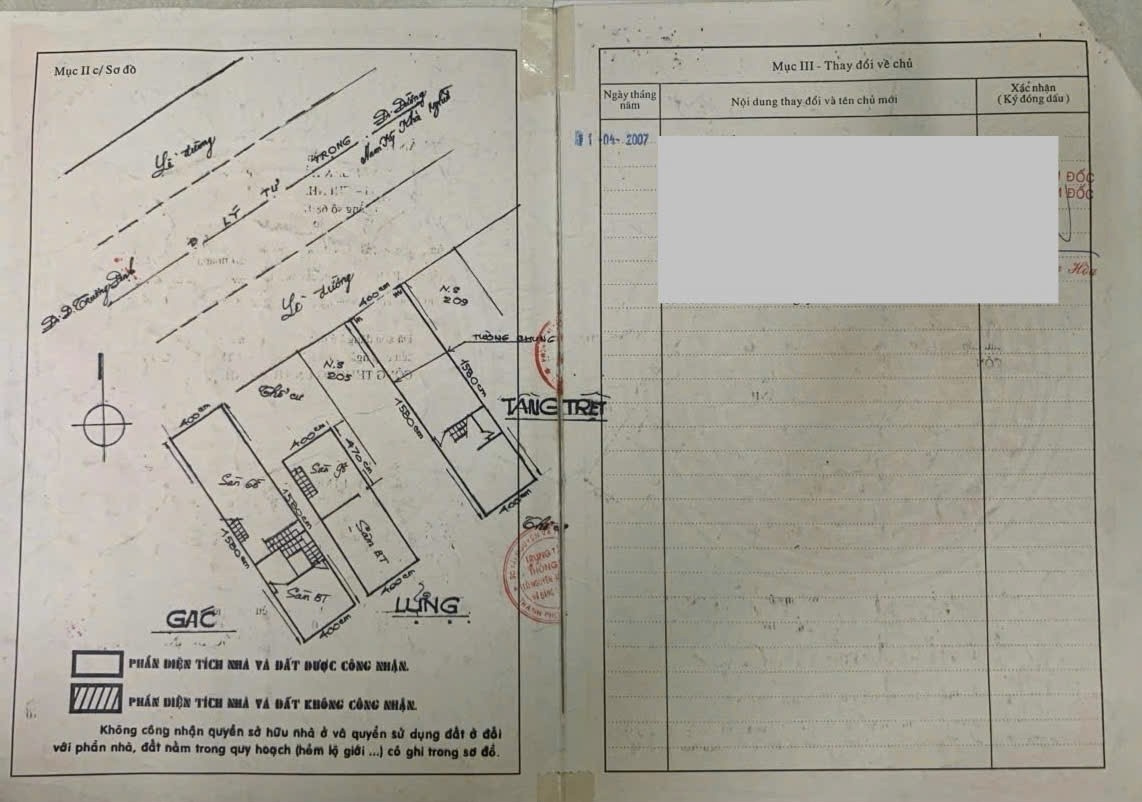 Mục II c/ Sơ đồ
Lề đường
Đ. LÝ TỰ TRỌNG
Đi Đường
Nam Kỳ Khởi Nghĩa
Đi Đ. Trương Định
Lề đường
400cm
N.S
209
TƯỜNG CHUNG
N.S
205
Thổ cư
1580cm
1580cm
TẦNG TRỆT
400cm
400cm
400cm
470cm
Sàn gỗ
Sàn Gỗ
1580cm
1580cm
Sàn BT
400cm
Sàn BT
400cm
GÁC
LỬNG
PHẦN DIỆN TÍCH NHÀ VÀ ĐẤT ĐƯỢC CÔNG NHẬN.
PHẦN DIỆN TÍCH NHÀ VÀ ĐẤT KHÔNG CÔNG NHẬN.
Không công nhận quyền sở hữu nhà ở và quyền sử dụng đất ở đối
với phần nhà, đất nằm trong quy hoạch (hẻm lộ giới ...) có ghi trong sơ đồ.
Mục III - Thay đổi về chủ
Ngày tháng năm
Nội dung thay đổi và tên chủ mới
Xác nhận
(Ký đóng dấu)
-04- 2007
ĐỐC
ĐỐC